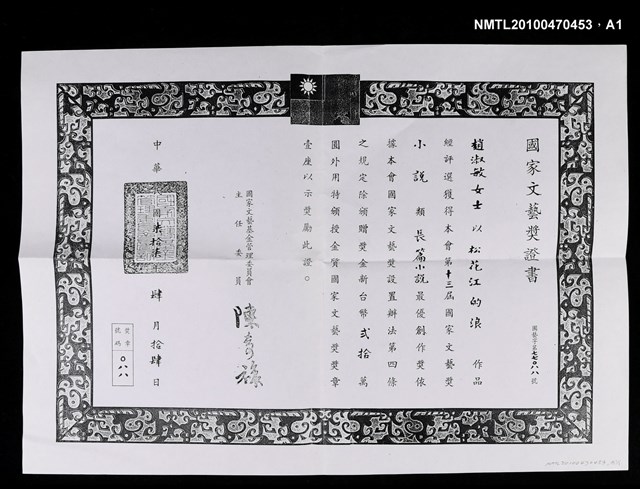 NMTL20100470453，A1
國家文藝獎證書
國藝字第七七〇八八號
趙淑敏女士以松花江的浪作品
經評選獲得本會第十三屆國家文藝獎
小說類長篇小說最優創作獎依
據本會國家文藝獎設置辦法第四條
之規定除頒贈獎金新台幣貳拾萬
圓外用特頒授金質國家文藝獎獎章
壹座以示獎勵此證。
國家文藝基金管理委員會
主任委員
陳奇祿
中華國柒拾柒肆月拾肆日
獎章號碼
〇八八